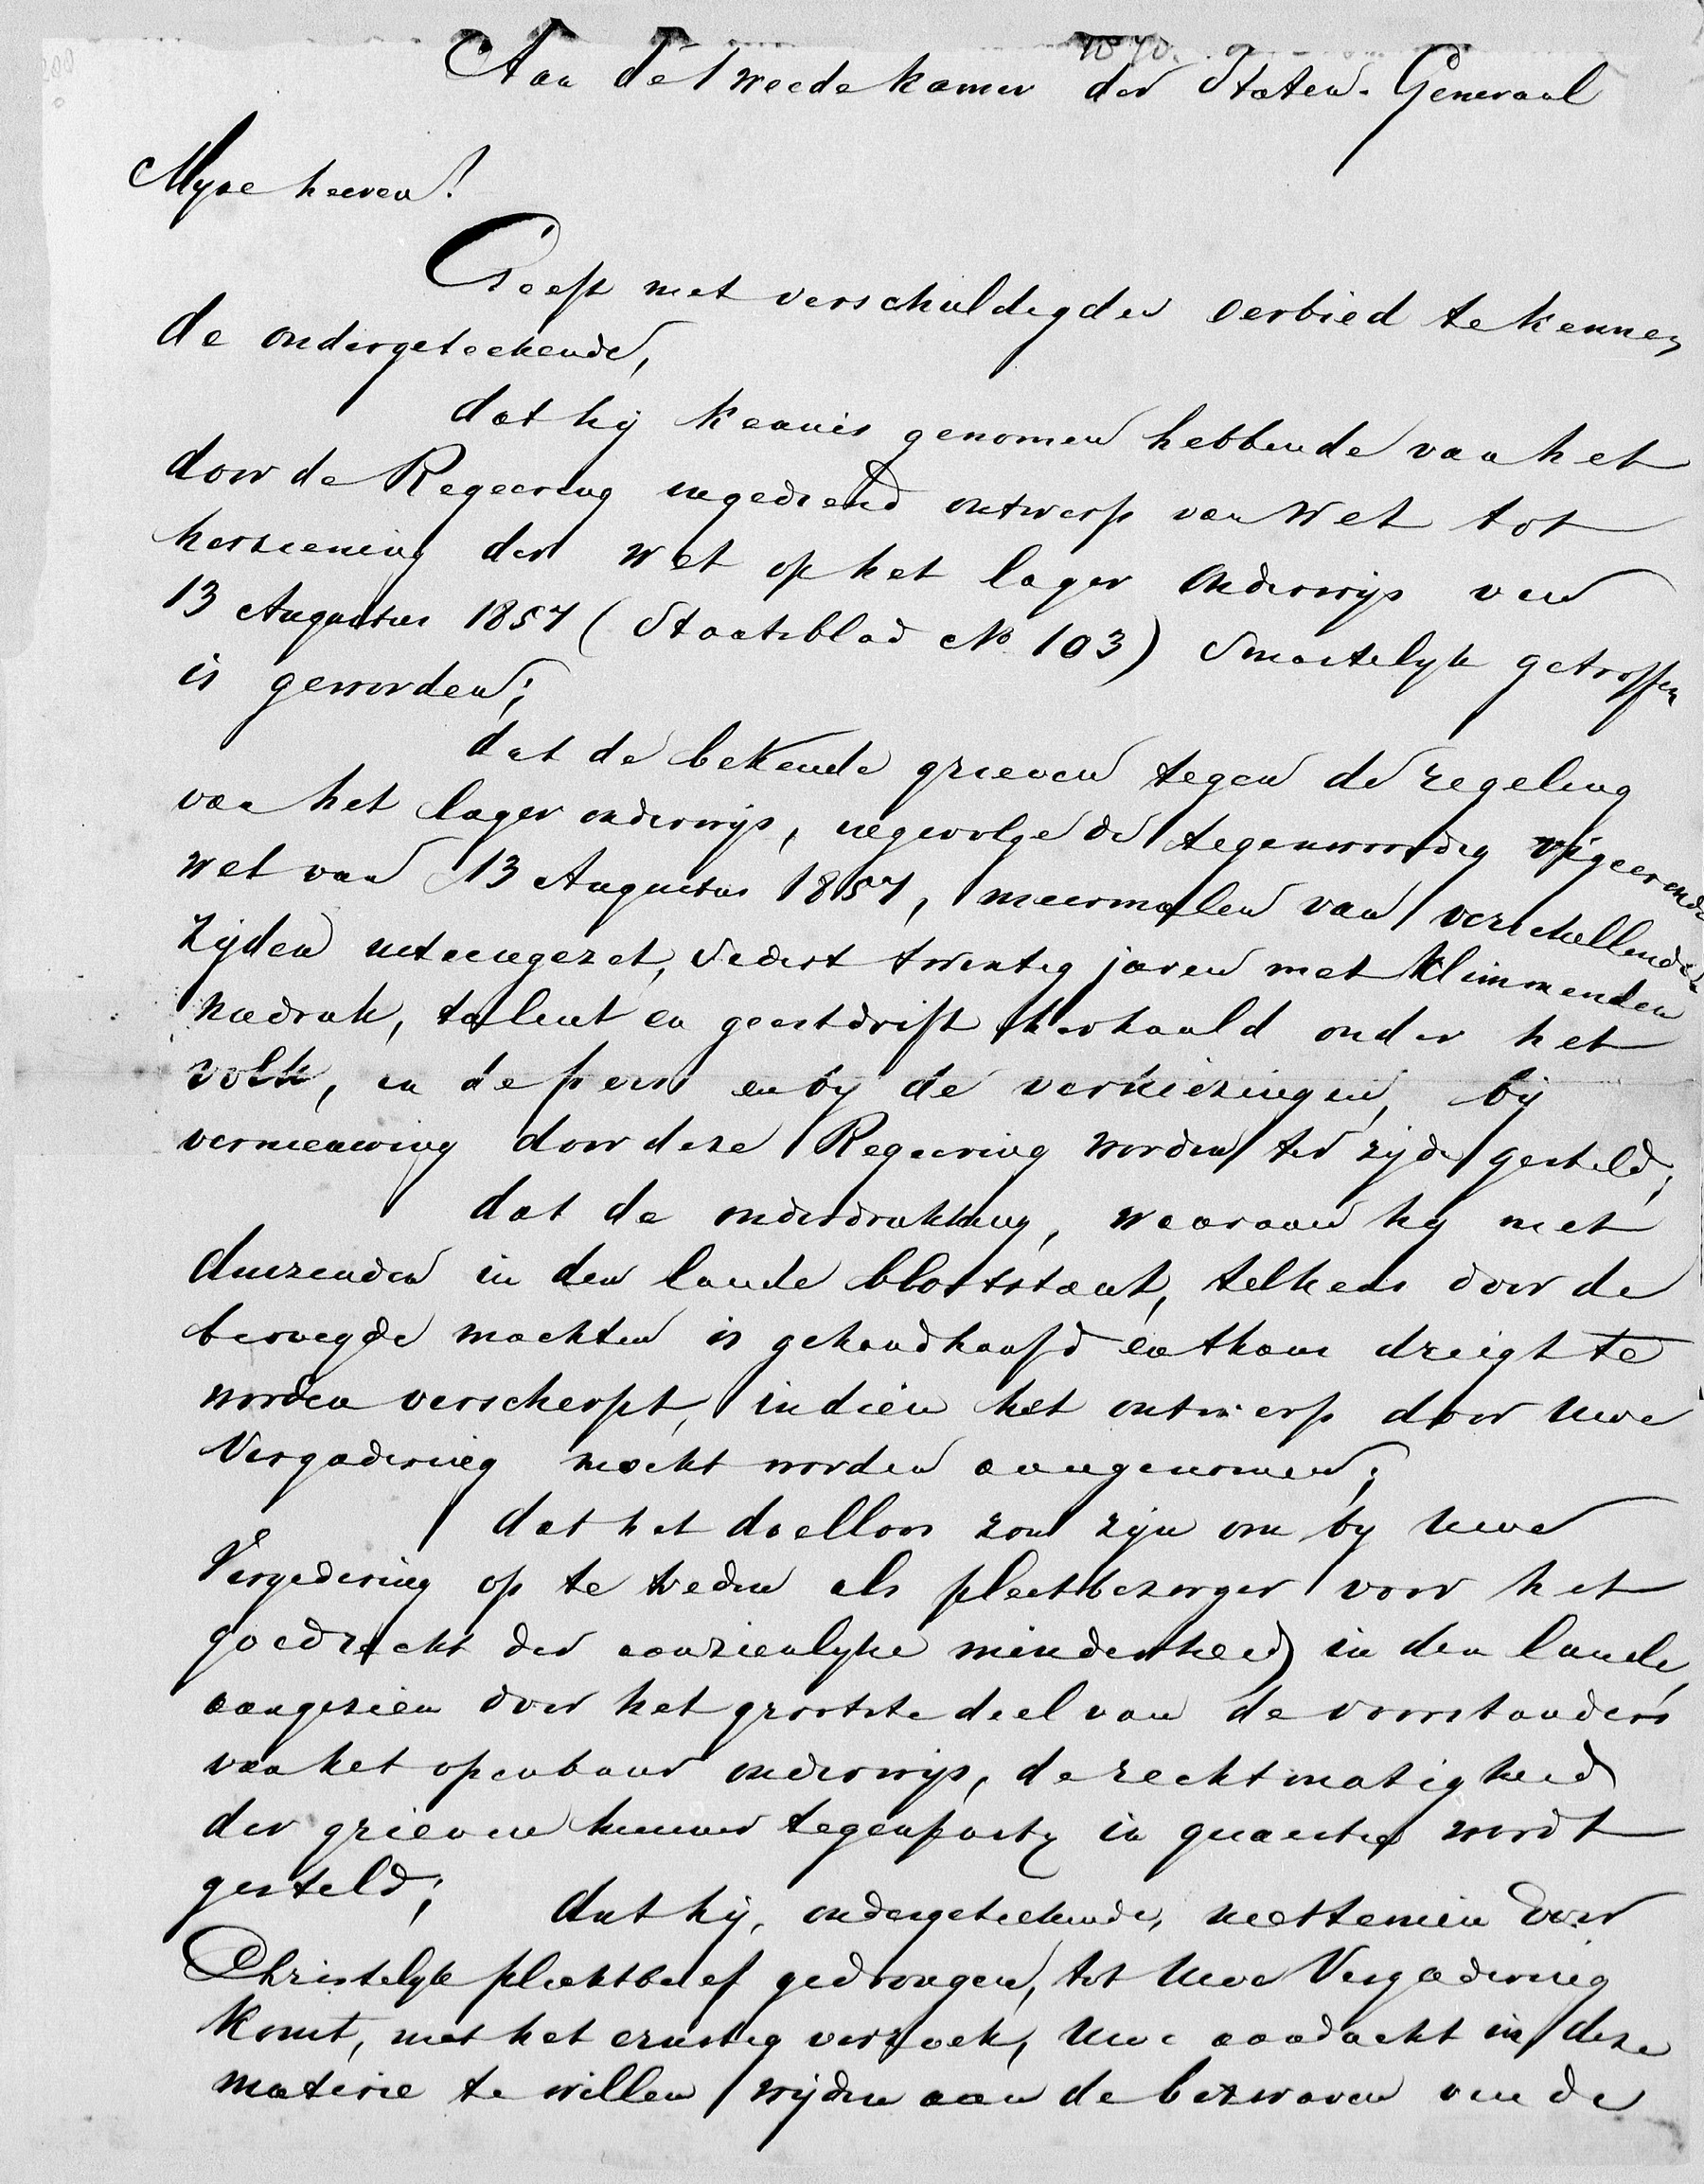 Aan de Tweede kamer der Staten-Generaal
Myne heeren!
Geeft met verschuldigden eerbied te kennen
de ondergeteekende,
dat hij kennis genomen hebbende van het
door de Regeering ingediend ontwerp van Wet tot
herziening der wet op het lager Onderwijs van
13 Augustus 1857 (Staatsblad No 103) smartelyk getroffen
is geworden;
dat de bekende grieven tegen de regeling
van het lager onderwijs, ingevolge de tegenwoordig vigeerende
wet van 13 Augustus 1857, meermalen van verschillende
zijden uiteengezet, sedert twintig jaren met klimmenden
nadruk, talent en geestdrift herhaald onder het
volk, in de pers en by de verkiezingen, bij
vernieuwing door deze Regeering worden ter zijde gesteld;
dat de onderdrukking, waaraan hy met
duizenden in den lande blootstaat, telkens door de
bevoegde machten is gehandhaafd en thans dreigt te
worden verscherpt, indien het ontwerp door Uwe
Vergadering mocht worden aangenomen;
dat het doelloos zou zijn om by Uwe
Vergadering op te treden als pleitbezorger voor het
goedrecht der aanzienlyke minderheid in den lande,
aangezien door het grootste deel van de voorstanders
van het openbaar onderwijs, de rechtmatigheid
der grieven hunner tegenparty in quaestie wordt
gesteld;
dat hij, ondergeteekende, niettemin door
Christelyk plichtbesef gedrongen, tot Uwe Vergadering
komt, met het ernstig verzoek, Uwe aandacht in deze
materie te willen wijden aan de bezwaren van de